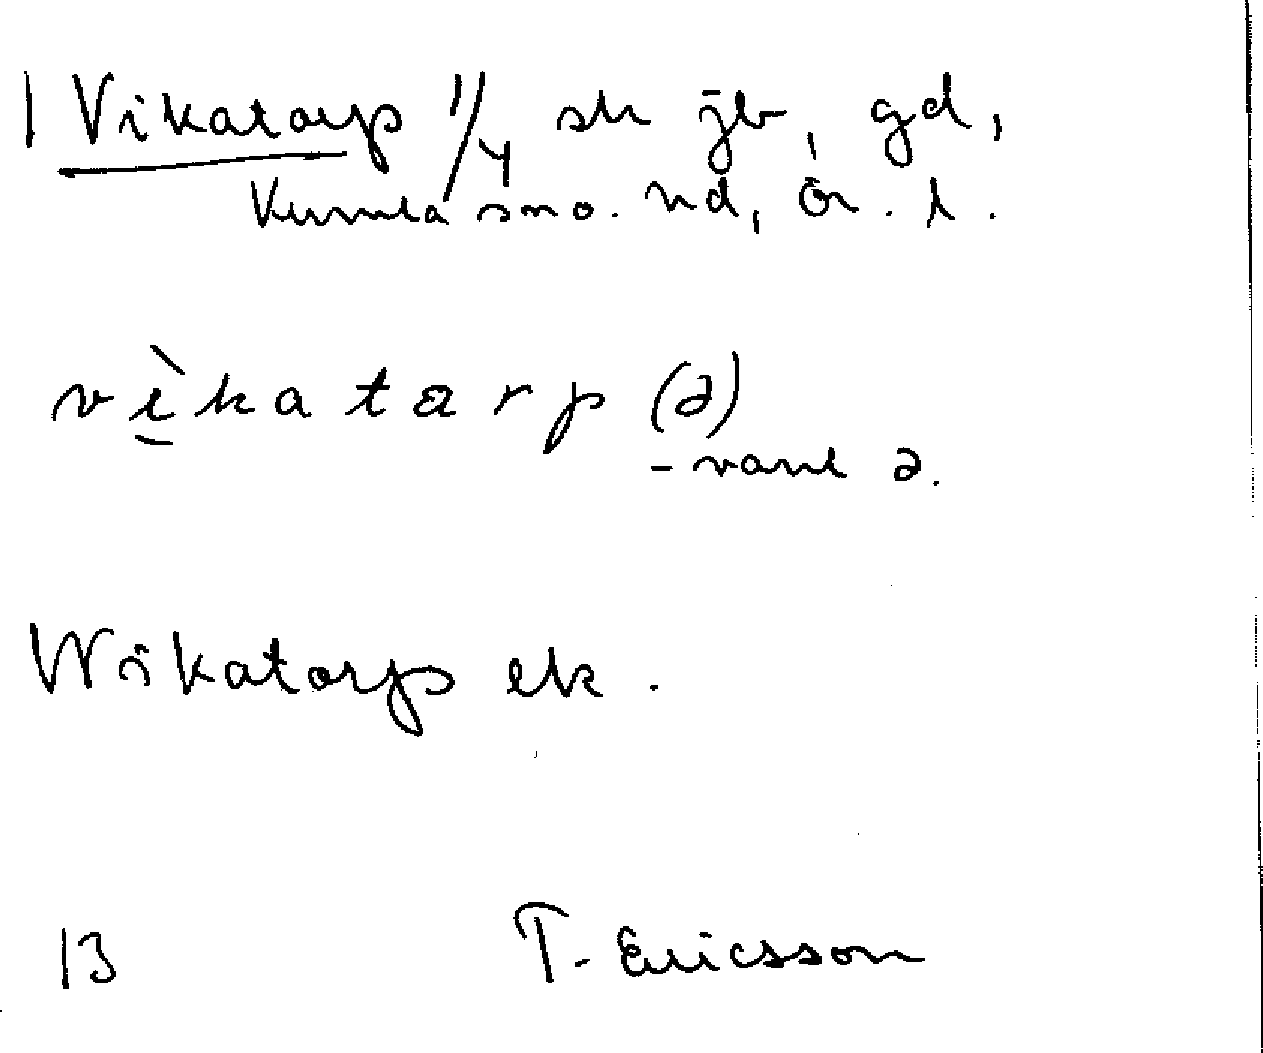 1 Vikatorp 1/4 sk jb, gd,
Kumla sno. nd, Ör. l.
vìkatarp (ə)
- vanl ə.
Wikatorp ek.
13 T. Ericsson